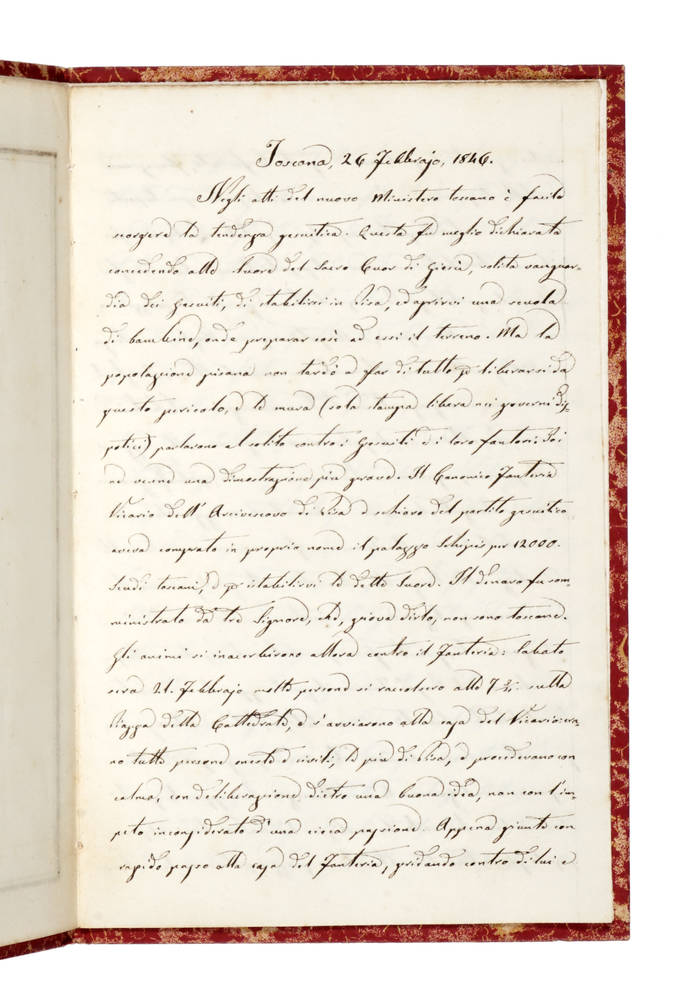 Toscana, 26 Febbrajo, 1846.
Negli atti del nuovo Ministero toscano è facile
scorgere la tendenza gesuitica. Questa fu meglio dichiarata
concedendo alle Suore del Sacro Cuor di Gesù, solita vanguar-
dia dei Gesuiti, di stabilirsi in Pisa, ed aprirvi una scuola
di bambine, onde preparar così ad essi il terreno. Ma la
popolazione pisana non tardò a far di tutto p liberarsi da
questo pericolo, e le mura (sola stampa libera nei governi dis-
potici) parlarono al solito contro i Gesuiti e i loro fautori. Poi
ne venne una dimostrazione più grave. Il Canonico Fanteria
Vicario dell' Arcivescovo di Pisa e schiavo del partito gesuitico
aveva comprato in proprio nome il palazzo per 12000.
Scudi toscani, e p istabilirvi le dette Suore. Il denaro fu som-
ministrato da tre Signore, che, giova dirlo, non sono toscane.
Gli animi si inacerbirono allora contro il Fanteria: Sabato
sera 21. Febbrajo molte persone si raccolsero alle 7 sulla
Piazza della Cattedrale, e s'avviarono alla casa del Vicario: era-
no tutte persone oneste e civili, le più di Pisa, e procedevano con
calma, con deliberazione dietro una buona idea, non con l'im-
peto inconsiderato d'una cieca passione. Appena giunte con
rapido passo alla casa del Fanteria, gridando contro di lui e